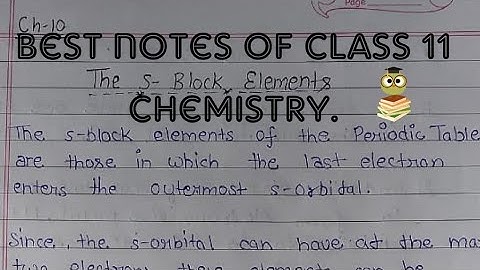 Page
Ch-10
BEST NOTES OF CLASS 11
The S-Block Elements
CHEMISTRY.
The s-block elements of the Periodic Table
are those in which the last electron
enters the outermost s-orbital.
Since, the s-orbital can have at the ma
two electrons, these elements can be